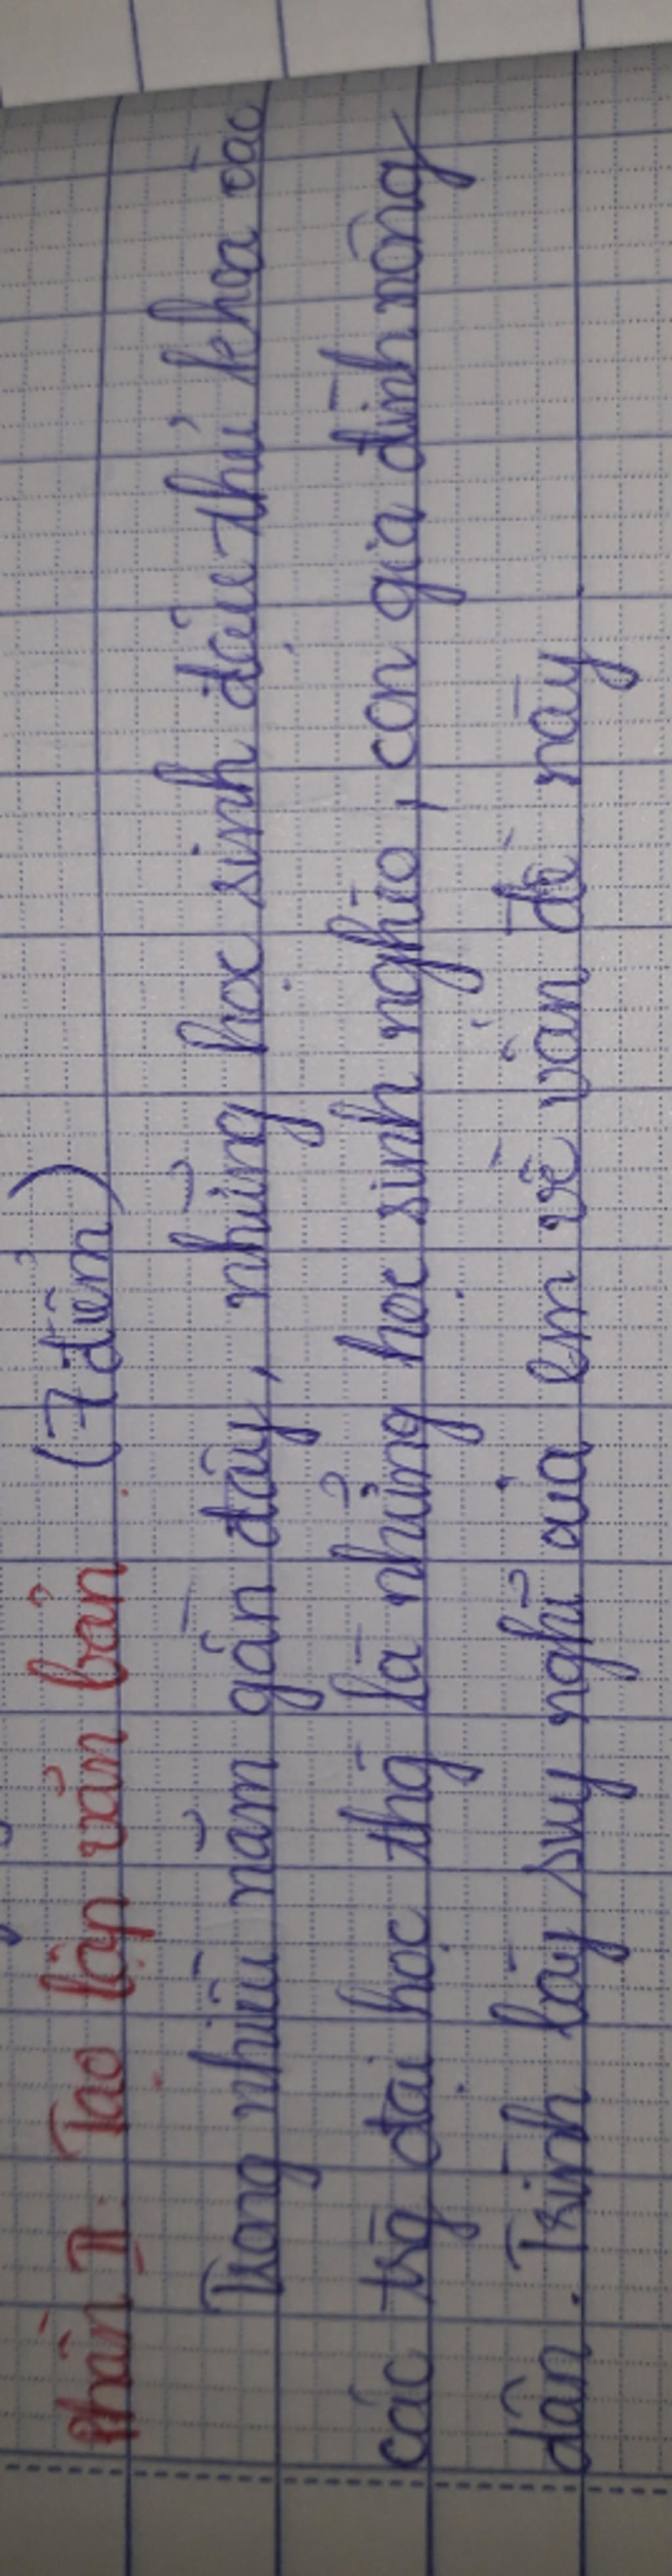 Phần II. Tạo lập văn bản (7 điểm)
Trong nhiều năm gần đây, những học sinh đậu thủ khoa vào
các trg đại học thg là những học sinh nghèo, con gia đình nông
dân. Trình bày suy nghĩ của em về vấn đề này